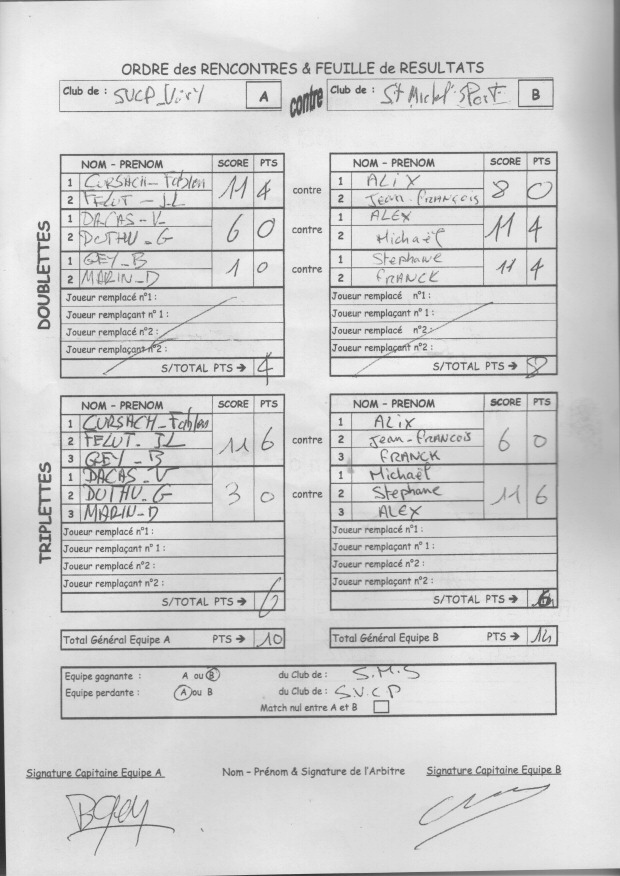 ORDRE des RENCONTRES & FEUILLE de RESULTATS
Club de : SVCP_Viry A contre Club de : St Michel Sport B
DOUBLETTES
NOM - PRENOM SCORE PTS NOM - PRENOM SCORE PTS
1 CURSACH - Fabien 11 4 contre 1 ALiX 8 0
2 FELUT - JL 2 Jean-FRANÇOIS
1 DACAS - V 6 0 contre 1 ALEX 11 4
2 DOTHU - G 2 Michaël
1 GEY - B 1 0 contre 1 Stephane 11 4
2 MARIN - D 2 FRANCK
Joueur remplacé n°1 : Joueur remplacé n°1 :
Joueur remplaçant n° 1 : Joueur remplaçant n° 1 :
Joueur remplacé n°2 : Joueur remplacé n°2 :
Joueur remplaçant n°2 : Joueur remplaçant n°2 :
S/TOTAL PTS → 4 S/TOTAL PTS → 8
TRIPLETTES
NOM - PRENOM SCORE PTS NOM - PRENOM SCORE PTS
1 CURSACH - Fabien 11 6 contre 1 ALiX 6 0
2 FELUT - JL 2 Jean-FRANCOIS
3 GEY - B 3 FRANCK
1 DACAS - V 3 0 contre 1 Michaël 11 6
2 DOTHU - G 2 Stephane
3 MARIN - D 3 ALEX
Joueur remplacé n°1 : Joueur remplacé n°1 :
Joueur remplaçant n° 1 : Joueur remplaçant n° 1 :
Joueur remplacé n°2 : Joueur remplacé n°2 :
Joueur remplaçant n°2 : Joueur remplaçant n°2 :
S/TOTAL PTS → 6 S/TOTAL PTS → 6
Total Général Equipe A PTS → 10 Total Général Equipe B PTS → 14
Equipe gagnante : A ou B du Club de : S.M.S
Equipe perdante : A ou B du Club de : S.V.C.P
Match nul entre A et B
Signature Capitaine Equipe A Nom - Prénom & Signature de l'Arbitre Signature Capitaine Equipe B
BGey